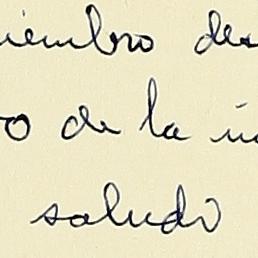 iembro de
o de la
saludó